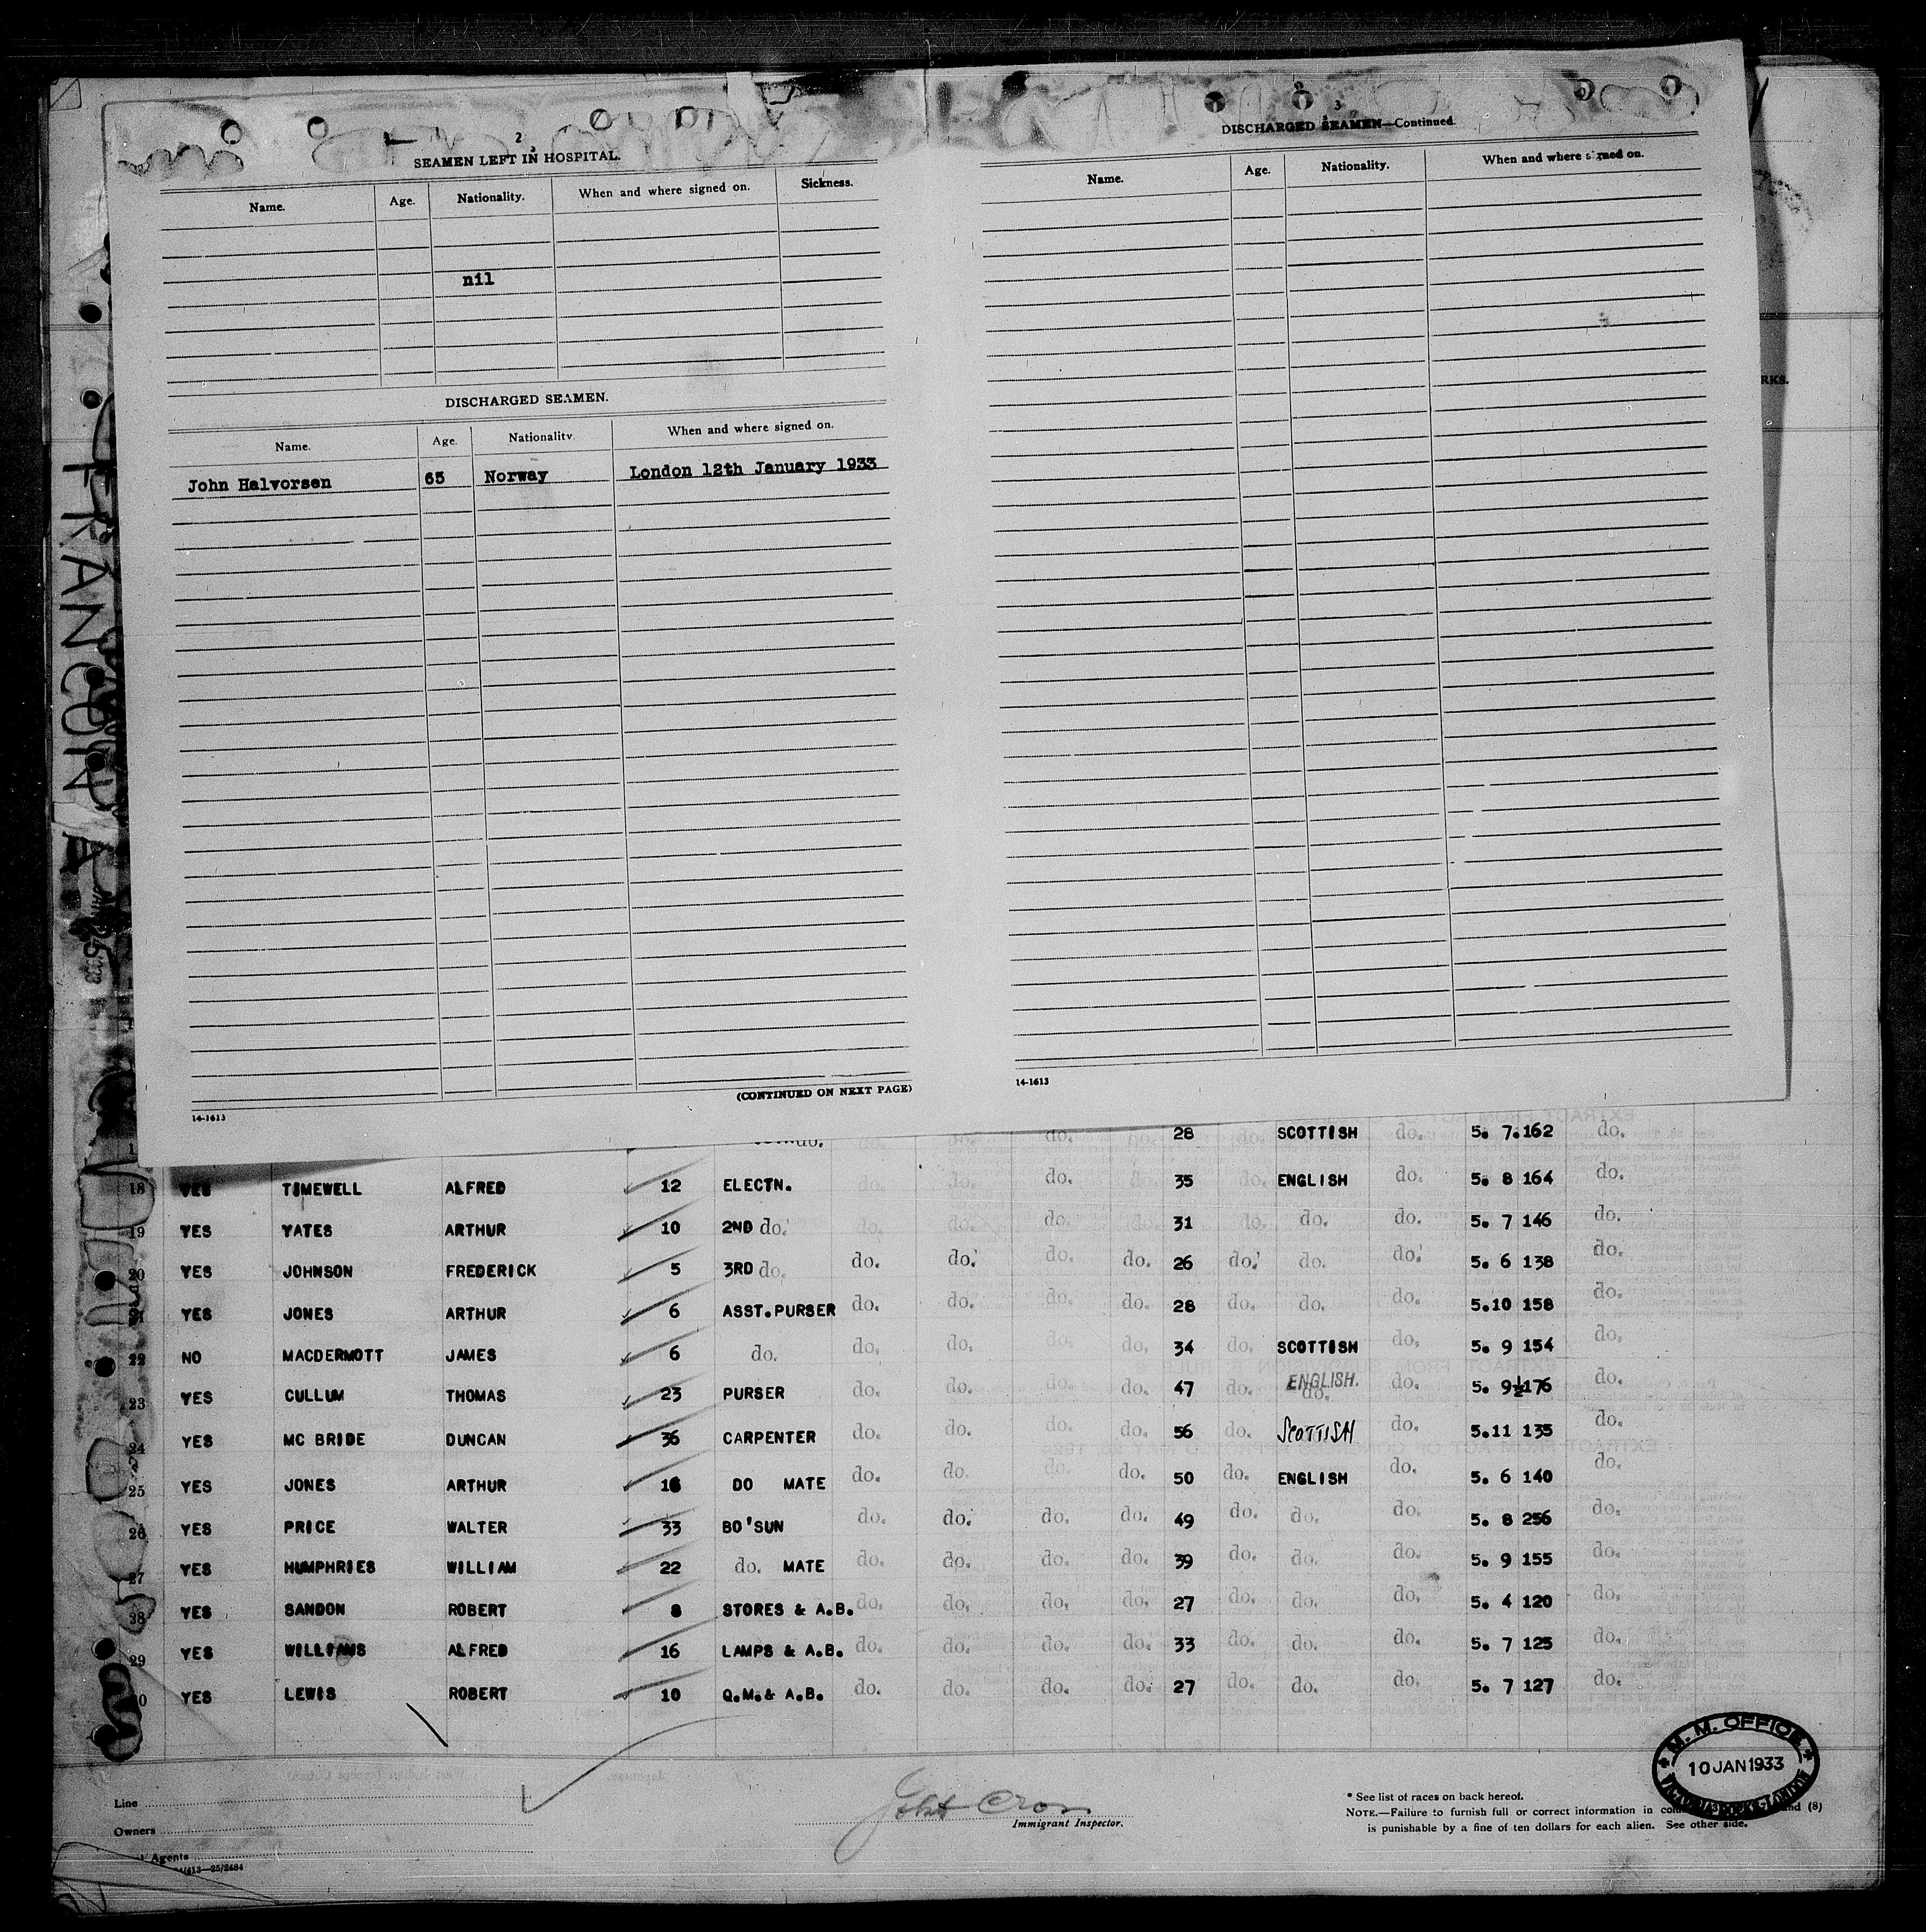 2
SEAMEN LEFT IN HOSPITAL.
Name. Age. Nationality. When and where signed on. Sickness.
nil
DISCHARGED SEAMEN.
Name. Age. Nationality. When and where signed on.
John Halvorsen 65 Norway London 12th January 1933
(CONTINUED ON NEXT PAGE)
14-1613
3
DISCHARGED SEAMEN—Continued.
Name. Age. Nationality. When and where signed on.
14-1613
RKS.
FRANCONIA
do. do. 28 do. SCOTTISH do. 5. 7. 162 do.
18 YES TIMEWELL ALFRED 12 ELECTN. do. do. do. do. 35 do. ENGLISH do. 5. 8 164 do.
19 YES YATES ARTHUR 10 2ND do. do. do. do. do. 31 do. do. do. 5. 7 146 do.
20 YES JOHNSON FREDERICK 5 3RD do. do. do. do. do. 26 do. do. do. 5. 6 138 do.
21 YES JONES ARTHUR 6 ASST. PURSER do. do. do. do. 28 do. do. do. 5.10 158 do.
22 NO MACDERMOTT JAMES 6 do. do. do. do. do. 34 do. SCOTTISH do. 5. 9 154 do.
23 YES CULLUM THOMAS 23 PURSER do. do. do. do. 47 do. ENGLISH. do. do. 5. 9½ 176 do.
24 YES MC BRIDE DUNCAN 36 CARPENTER do. do. do. do. 56 do. SCOTTISH do. 5.11 135 do.
25 YES JONES ARTHUR 16 DO MATE do. do. do. do. 50 do. ENGLISH do. 5. 6 140 do.
26 YES PRICE WALTER 33 BO'SUN do. do. do. do. 49 do. do. do. 5. 8 256 do.
27 YES HUMPHRIES WILLIAM 22 do. MATE do. do. do. do. 39 do. do. do. 5. 9 155 do.
28 YES SANDON ROBERT 8 STORES & A.B. do. do. do. do. 27 do. do. do. 5. 4 120 do.
29 YES WILLIAMS ALFRED 16 LAMPS & A.B. do. do. do. do. 33 do. do. do. 5. 7 125 do.
0 YES LEWIS ROBERT 10 Q.M.& A.B. do. do. do. do. 27 do. do. do. 5. 7 127 do.
Line
Owners
Agents
Immigrant Inspector.
* See list of races on back hereof.
NOTE.—Failure to furnish full or correct information in and (8)
is punishable by a fine of ten dollars for each alien. See other side.
M. M. OFFICE
10 JAN 1933